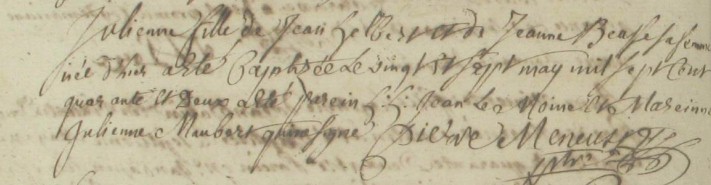 Julienne fille de Jean et de Jeanne sa femme
née d'hier a été Baptisée Le vingt et sept may mil sept Cent
quarante et Deux a été parein Jean Le Moine et Mareinne
Julienne Maubert qui ne signe Pierre Meneust
ptre